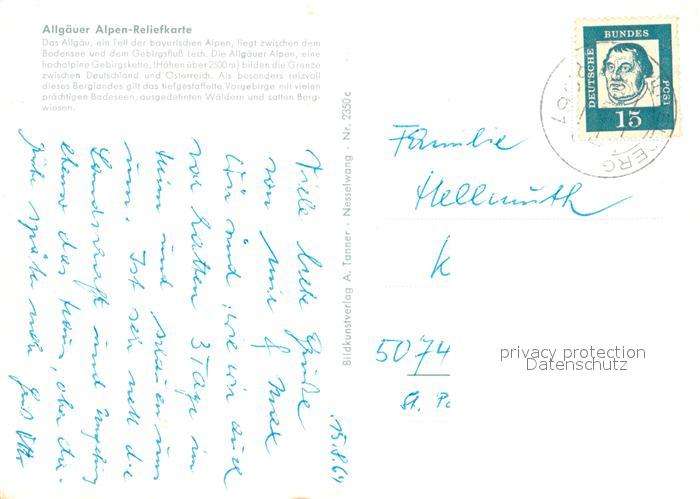 Allgäuer Alpen-Reliefkarte
Das Allgäu, ein Teil der bayerischen Alpen, liegt zwischen dem
Bodensee und dem Gebirgsfluß Lech. Die Allgäuer Alpen, eine
hochalpine Gebirgskette, (Höhen über 2500 m) bilden die Grenze
zwischen Deutschland und Österreich. Als besonders reizvoll
dieses Berglandes gilt das tiefgestaffelte Vorgebirge mit vielen
prächtigen Badeseen, ausgedehnten Wäldern und satten Berg-
wiesen.
15.8.64
Viele liebe Grüße
von mir &
Wir sind, wie wir auch
vor hatten 3 Tage in
und schauen uns
um. Ist sehr nett die
Landschaft und Umgebung
ebenso das Haus, aber
später mehr
Bildkunstverlag A. Tanner · Nesselwang · Nr. 2350 c
DEUTSCHE BUNDES POST
15
BERG
Familie
Hellmuth
K
5074
St. Pe
privacy protection
Datenschutz